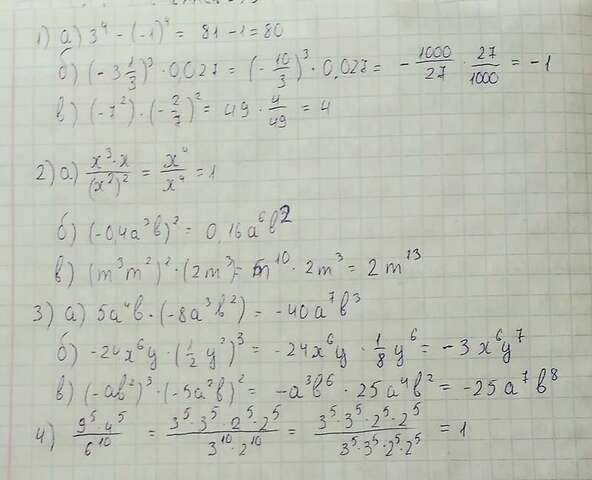 1) а) 3⁴ - (-1)⁴ = 81 - 1 = 80
б) (-3 1/3)³ · 0,027 = (-10/3)³ · 0,027 = -1000/27 · 27/1000 = -1
в) (-7²) · (-2/7)² = 49 · 4/49 = 4
2) а) x³·x/(x²)² = x⁴/x⁴ = 1
б) (-0,4a³b)² = 0,16a⁶b²
в) (m³m²)² · (2m³) = m¹⁰ · 2m³ = 2m¹³
3) а) 5a⁴b · (-8a³b²) = -40a⁷b³
б) -24x⁶y · (1/2 y²)³ = -24x⁶y · 1/8 y⁶ = -3x⁶y⁷
в) (-ab²)³ · (-5a²b)² = -a³b⁶ · 25a⁴b² = -25a⁷b⁸
4) 9⁵·4⁵/6¹⁰ = 3⁵·3⁵·2⁵·2⁵/3¹⁰·2¹⁰ = 3⁵·3⁵·2⁵·2⁵/3⁵·3⁵·2⁵·2⁵ = 1